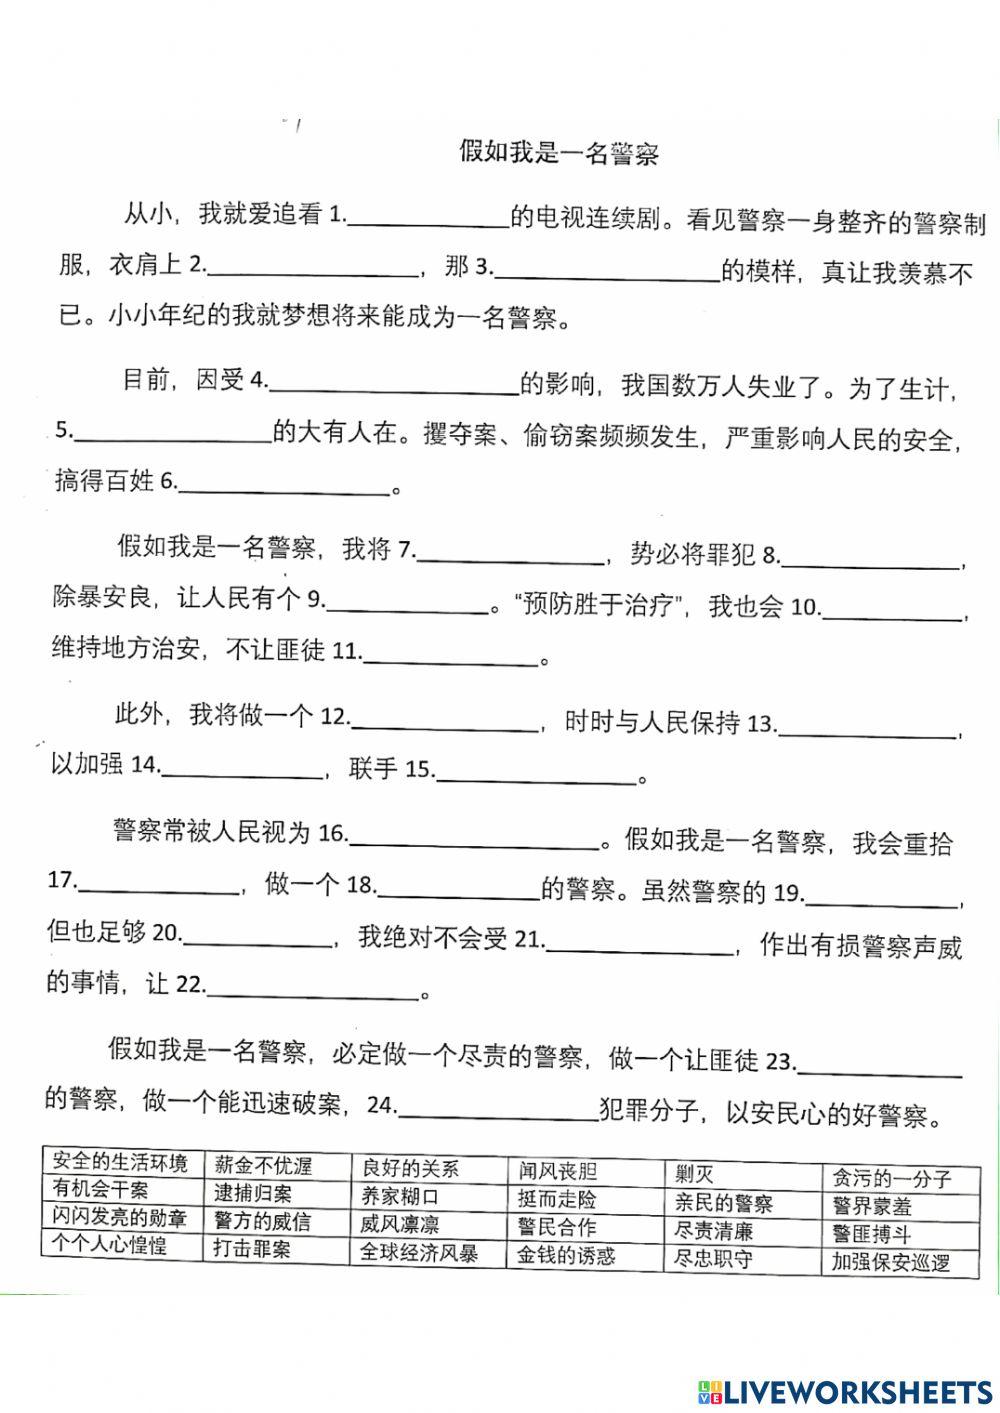 假如我是一名警察
从小，我就爱追看 1.____________的电视连续剧。看见警察一身整齐的警察制
服，衣肩上 2.________________，那 3.________________的模样，真让我羡慕不
已。小小年纪的我就梦想将来能成为一名警察。
目前，因受 4.__________________的影响，我国数万人失业了。为了生计，
5.______________的大有人在。攫夺案、偷窃案频频发生，严重影响人民的安全，
搞得百姓 6.________________。
假如我是一名警察，我将 7.______________，势必将罪犯 8.______________，
除暴安良，让人民有个 9.____________。“预防胜于治疗”，我也会 10.__________，
维持地方治安，不让匪徒 11.____________。
此外，我将做一个 12.______________，时时与人民保持 13.____________，
以加强 14.____________，联手 15.______________。
警察常被人民视为 16.__________________。假如我是一名警察，我会重拾
17.____________，做一个 18.____________的警察。虽然警察的 19.____________，
但也足够 20.__________，我绝对不会受 21.______________，作出有损警察声威
的事情，让 22.________________。
假如我是一名警察，必定做一个尽责的警察，做一个让匪徒 23.____________
的警察，做一个能迅速破案，24.______________犯罪分子，以安民心的好警察。
安全的生活环境 薪金不优渥 良好的关系 闻风丧胆 剿灭 贪污的一分子
有机会干案 逮捕归案 养家糊口 挺而走险 亲民的警察 警界蒙羞
闪闪发亮的勋章 警方的威信 威风凛凛 警民合作 尽责清廉 警匪搏斗
个个人心惶惶 打击罪案 全球经济风暴 金钱的诱惑 尽忠职守 加强保安巡逻
LIVE LIVEWORKSHEETS